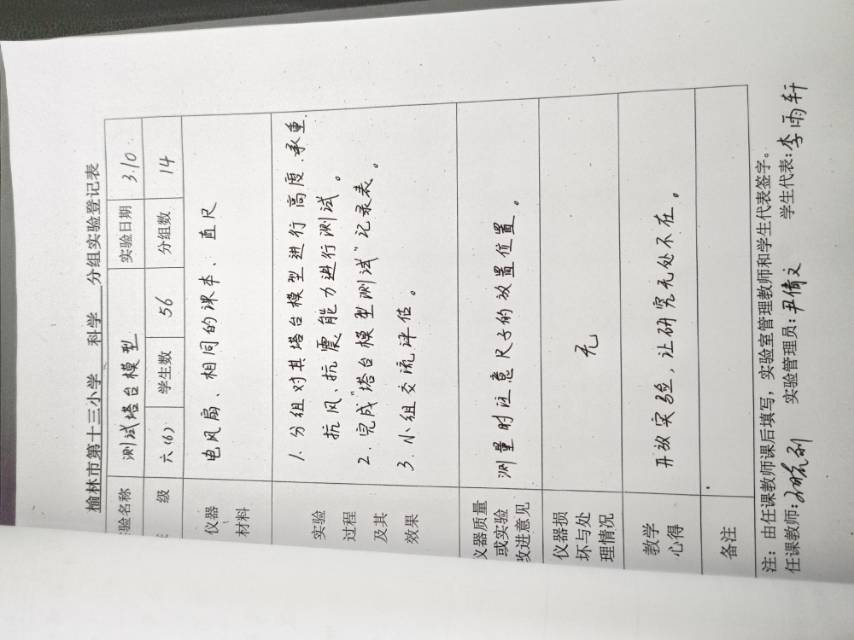 榆林市第十三小学 科学 分组实验登记表
验名称 测试塔台模型 实验日期 3.10
级 六(6) 学生数 56 分组数 14
仪器
材料
电风扇、相同的课本、直尺
实验
过程
及其
效果
1. 分组对其塔台模型进行高度、承重、
抗风、抗震能力进行测试。
2. 完成“塔台模型测试”记录表。
3. 小组交流评估。
仪器质量
或实验
改进意见
测量时注意尺子的放置位置。
仪器损
坏与处
理情况
无
教学
心得
开放实验，让研究无处不在。
备注
注：由任课教师课后填写，实验室管理教师和学生代表签字。
任课教师: 实验管理员:尹倩文 学生代表:李雨轩